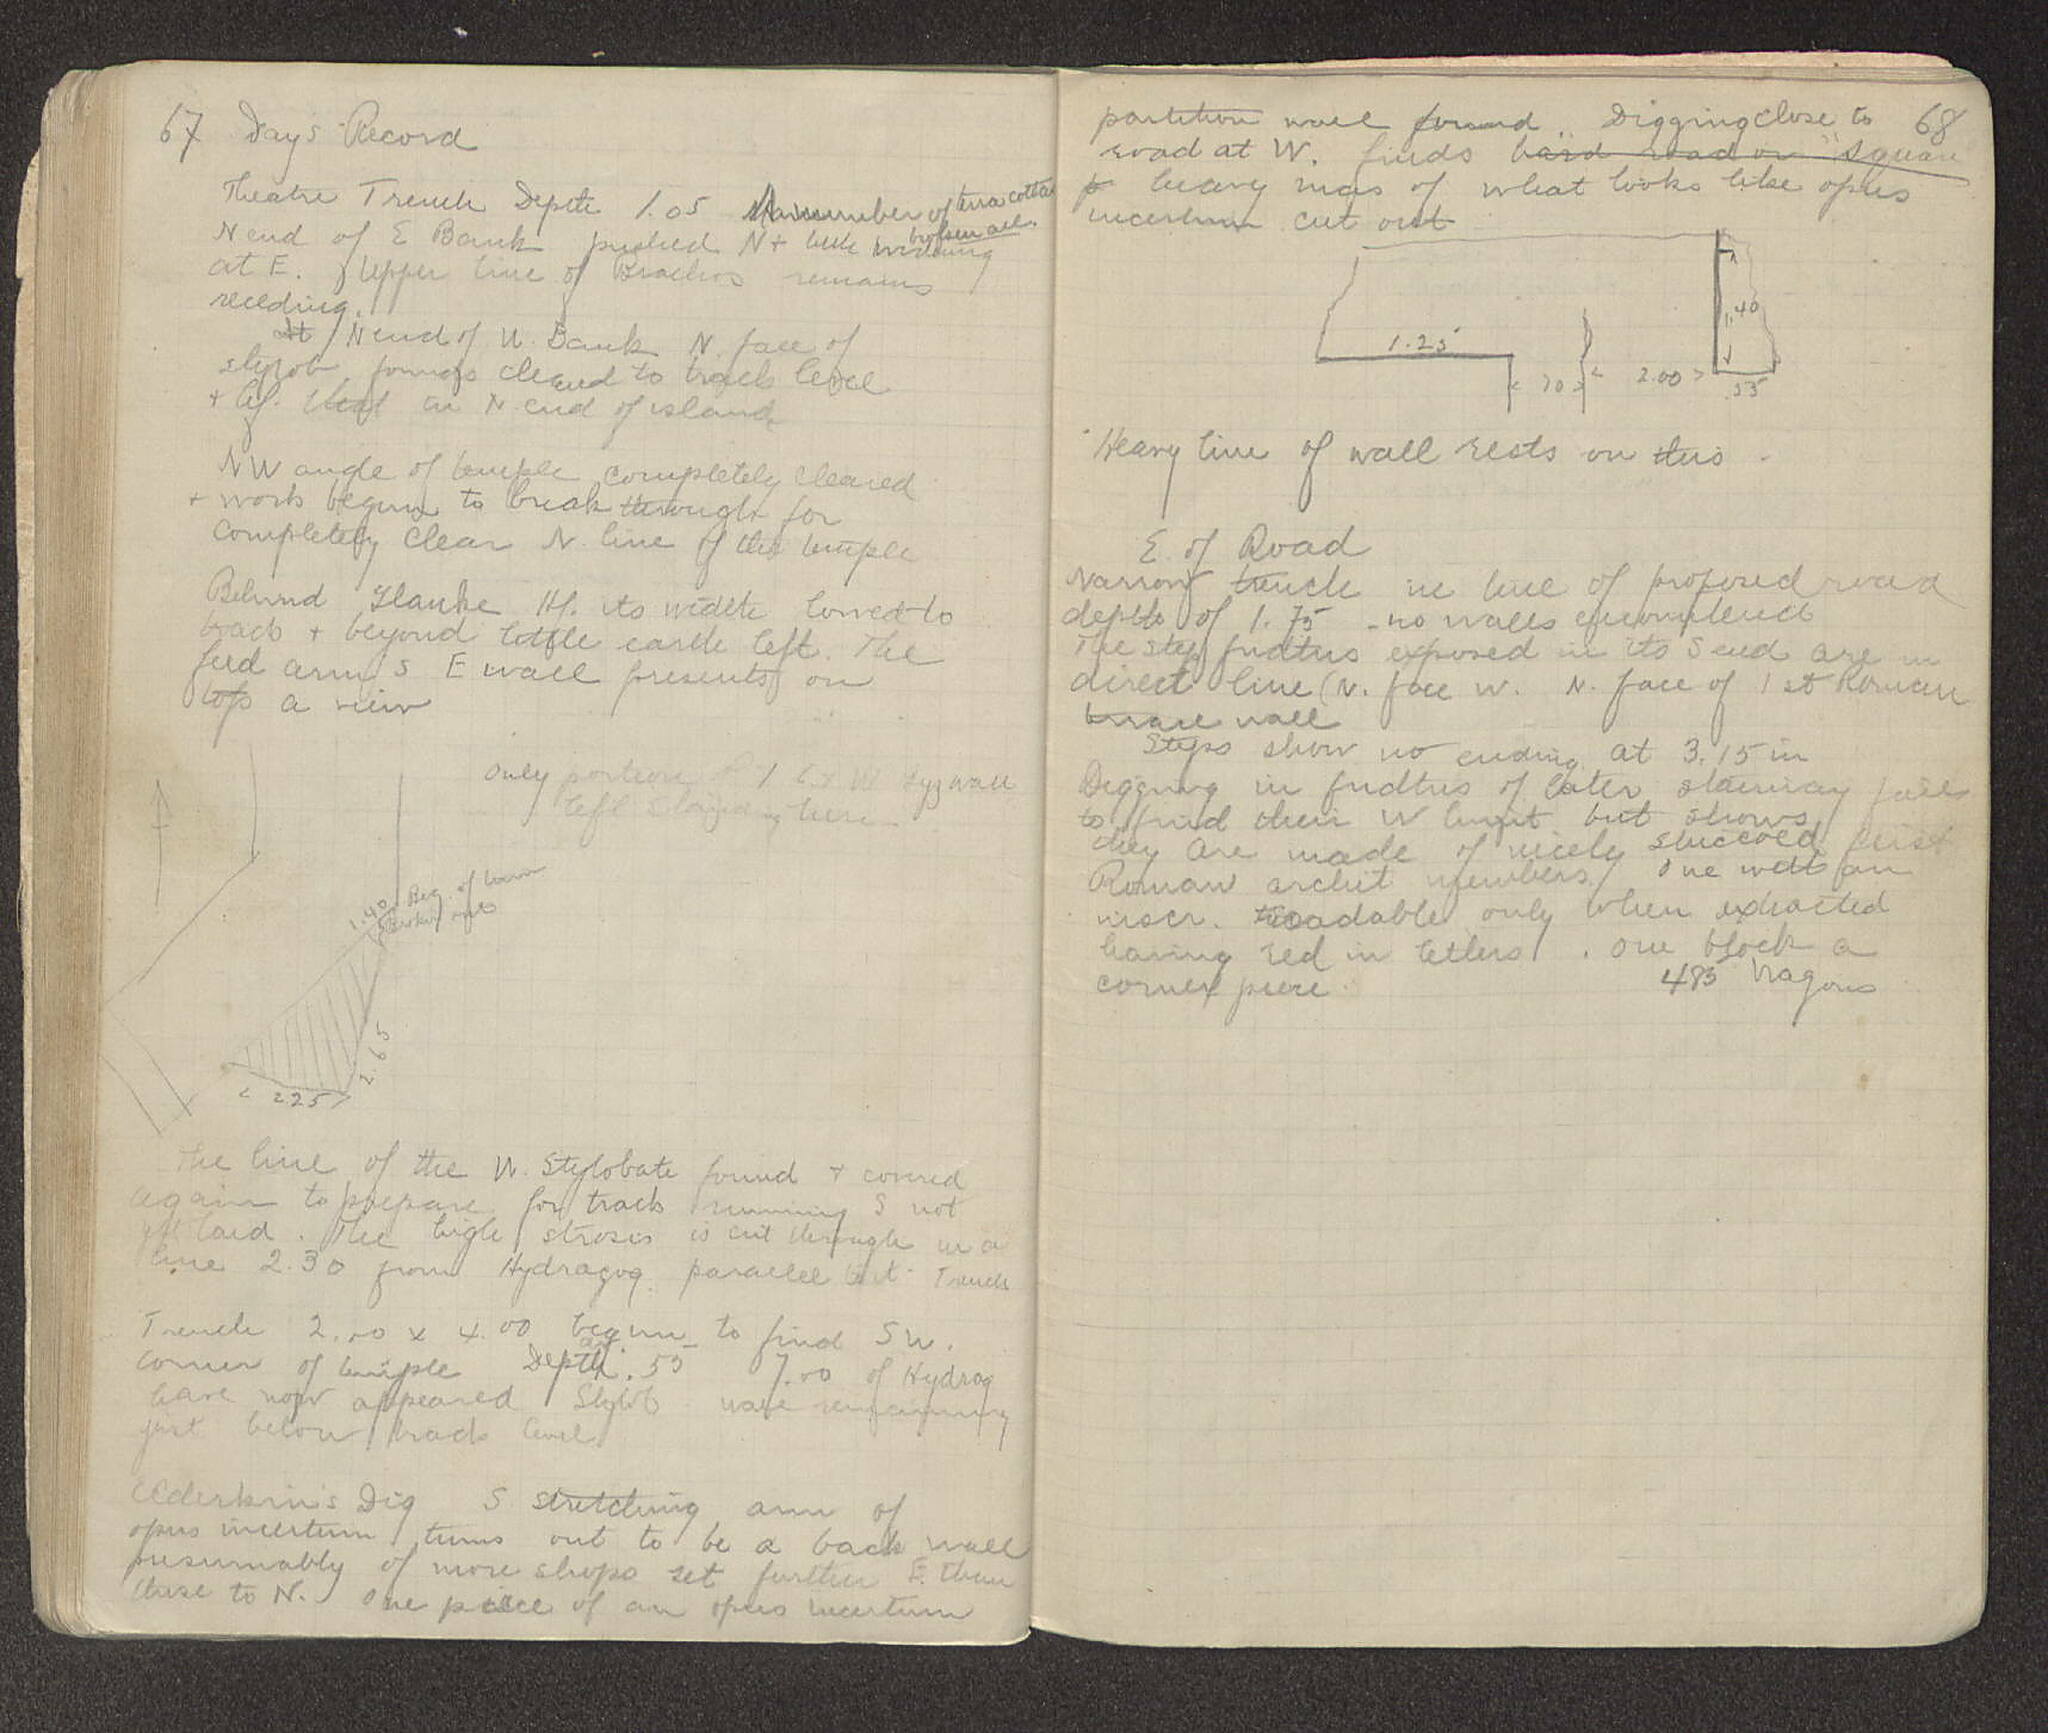 67 Day's Record
Theatre Trench Depth 1.05 A number of terra cottas
broken all.
N end of E Bank pushed N + little widening
at E. Upper line of Brachos remains
receding.
At N end of W. Bank N. face of
stylob cleared to track level
+ in N end of island
NW angle of temple completely cleared
+ work begun to break through for
completely clear N. line of the temple
Behind Glauke Hf. its width lowered to
track + beyond little earth left. The
S E wall presents on
top a view
Only portion of W Lyg wall
left standing here
1.40 Beg. of
Broken
2.65
< 2.25 >
The line of the W. Stylobate found + covered
again to prepare for track running S not
yet laid. The high strosis is cut through in a
line 2.30 from Hydragog. parallel but Trench
Trench 2.00 x 4.00 begun to find SW.
corner of temple Depth .55 7.00 of Hydrag
have now appeared Stylob
just below track level
Askerkin's Dig S stretching arm of
opus incertum turns out to be a back wall
presumably of more shops set further E. than
those to N. One piece of an opus incertum
68
partition wall found. Digging close to
road at W. finds hard road or "square
heavy mass of what looks like opus
incertum cut out
1.25
< 70 >
< 2.00 >
1.40
.55
Heavy line of wall rests on this.
E. of Road
Narrow trench in line of proposed road
depth of 1.75 - no walls encountered
The step fndtns exposed in its S end are in
direct line (N. face W. N. face of 1st Roman
terrace wall
Steps show no ending at 3.15 m
Digging in fndtns of later stairway fails
to find their W limit but shows
they are made of nicely stuccoed first
Roman archit members / One with an
inscr. readable only when extracted
having red in letters. One block a
corner piece.
485 Wagons